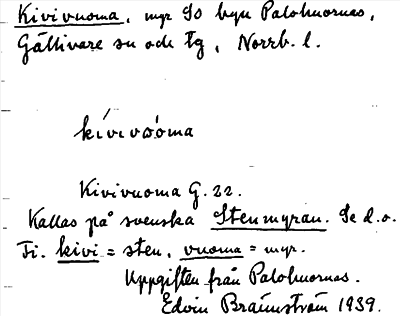 Kivivuoma, myr So byn Palohuornas,
Gällivare sn och tg, Norrb. l.
kívivωòma
Kivivuoma G. 22.
Kallas på svenska Stenmyran. Se d.o.
Fi. kivi = sten, vuoma = myr.
Uppgiften från Palohuornas.
Edvin Brännström 1939.